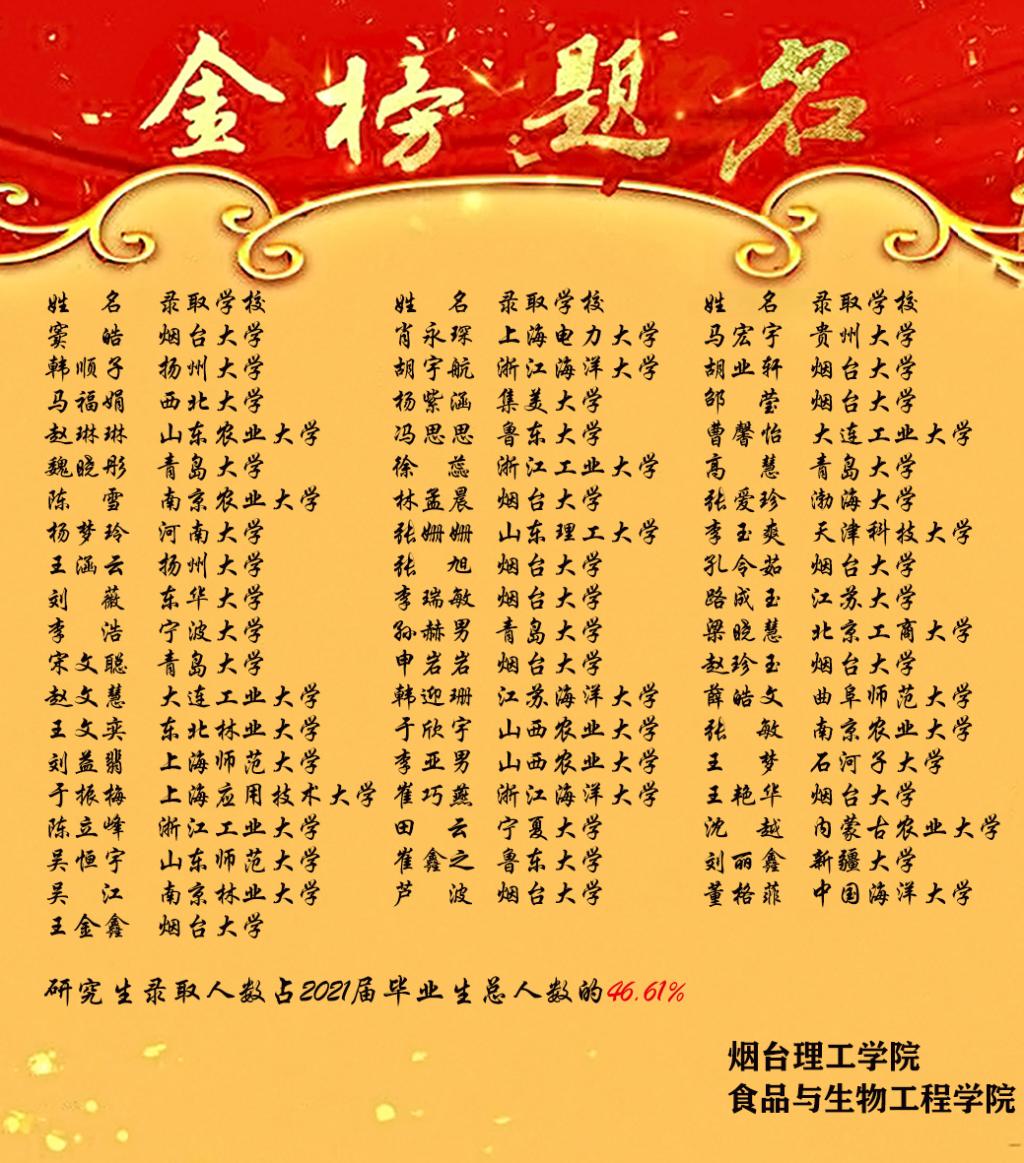 金榜题名
姓 名 录取学校 姓 名 录取学校 姓 名 录取学校
窦 皓 烟台大学 肖永琛 上海电力大学 马宏宇 贵州大学
韩顺子 扬州大学 胡宇航 浙江海洋大学 胡业轩 烟台大学
马福娟 西北大学 杨紫涵 集美大学 邹 莹 烟台大学
赵琳琳 山东农业大学 冯思思 鲁东大学 曹馨怡 大连工业大学
魏晓彤 青岛大学 徐 蕊 浙江工业大学 高 慧 青岛大学
陈 雪 南京农业大学 林孟晨 烟台大学 张爱珍 渤海大学
杨梦玲 河南大学 张姗姗 山东理工大学 李玉爽 天津科技大学
王涵云 扬州大学 张 旭 烟台大学 孔令茹 烟台大学
刘 薇 东华大学 李瑞敏 烟台大学 路成玉 江苏大学
李 浩 宁波大学 孙赫男 青岛大学 梁晓慧 北京工商大学
宋文聪 青岛大学 申岩岩 烟台大学 赵珍玉 烟台大学
赵文慧 大连工业大学 韩迎珊 江苏海洋大学 薛皓文 曲阜师范大学
王文奕 东北林业大学 于欣宇 山西农业大学 张 敏 南京农业大学
刘益翡 上海师范大学 李亚男 山西农业大学 王 梦 石河子大学
于振梅 上海应用技术大学 崔巧燕 浙江海洋大学 王艳华 烟台大学
陈立峰 浙江工业大学 田 云 宁夏大学 沈 越 内蒙古农业大学
吴恒宇 山东师范大学 崔鑫之 鲁东大学 刘丽鑫 新疆大学
吴 江 南京林业大学 芦 波 烟台大学 董格菲 中国海洋大学
王金鑫 烟台大学
研究生录取人数占2021届毕业生总人数的46.61%
烟台理工学院
食品与生物工程学院